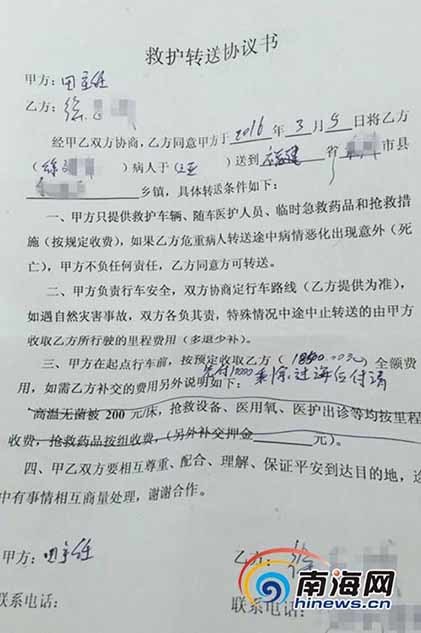 救护转送协议书
甲方：田主任
乙方：徐
经甲乙双方协商，乙方同意甲方于2016年3月5日将乙方
（徐　　）病人于（三亚）送到福建省　　市县
　　乡镇，具体转送条件如下：
一、甲方只提供救护车辆、随车医护人员、临时急救药品和抢救措
施（按规定收费），如果乙方危重病人转送途中病情恶化出现意外（死
亡），甲方不负任何责任，乙方同意方可转送。
二、甲方负责行车安全，双方协商定行车路线（乙方提供为准），
如遇自然灾害事故，双方各负其责，特殊情况中途中止转送的由甲方
收取乙方所行驶的里程费用（多退少补）。
三、甲方在起点行车前，按预定收取乙方（　　元）全额费
先付10000 剩余过海后付清
用，如需乙方补交的费用另外说明如下：
高温无菌被200元/床，抢救设备、医用氧、医护出诊等均按里程
收费，抢救药品按组收费，（另外补交押金　　元）。
四、甲乙双方要相互尊重、配合、理解、保证平安到达目的地，途
中有事情相互商量处理，谢谢合作。
甲方：田主任　　乙方：徐
联系电话：　　联系电话：
南海网
hinews.cn